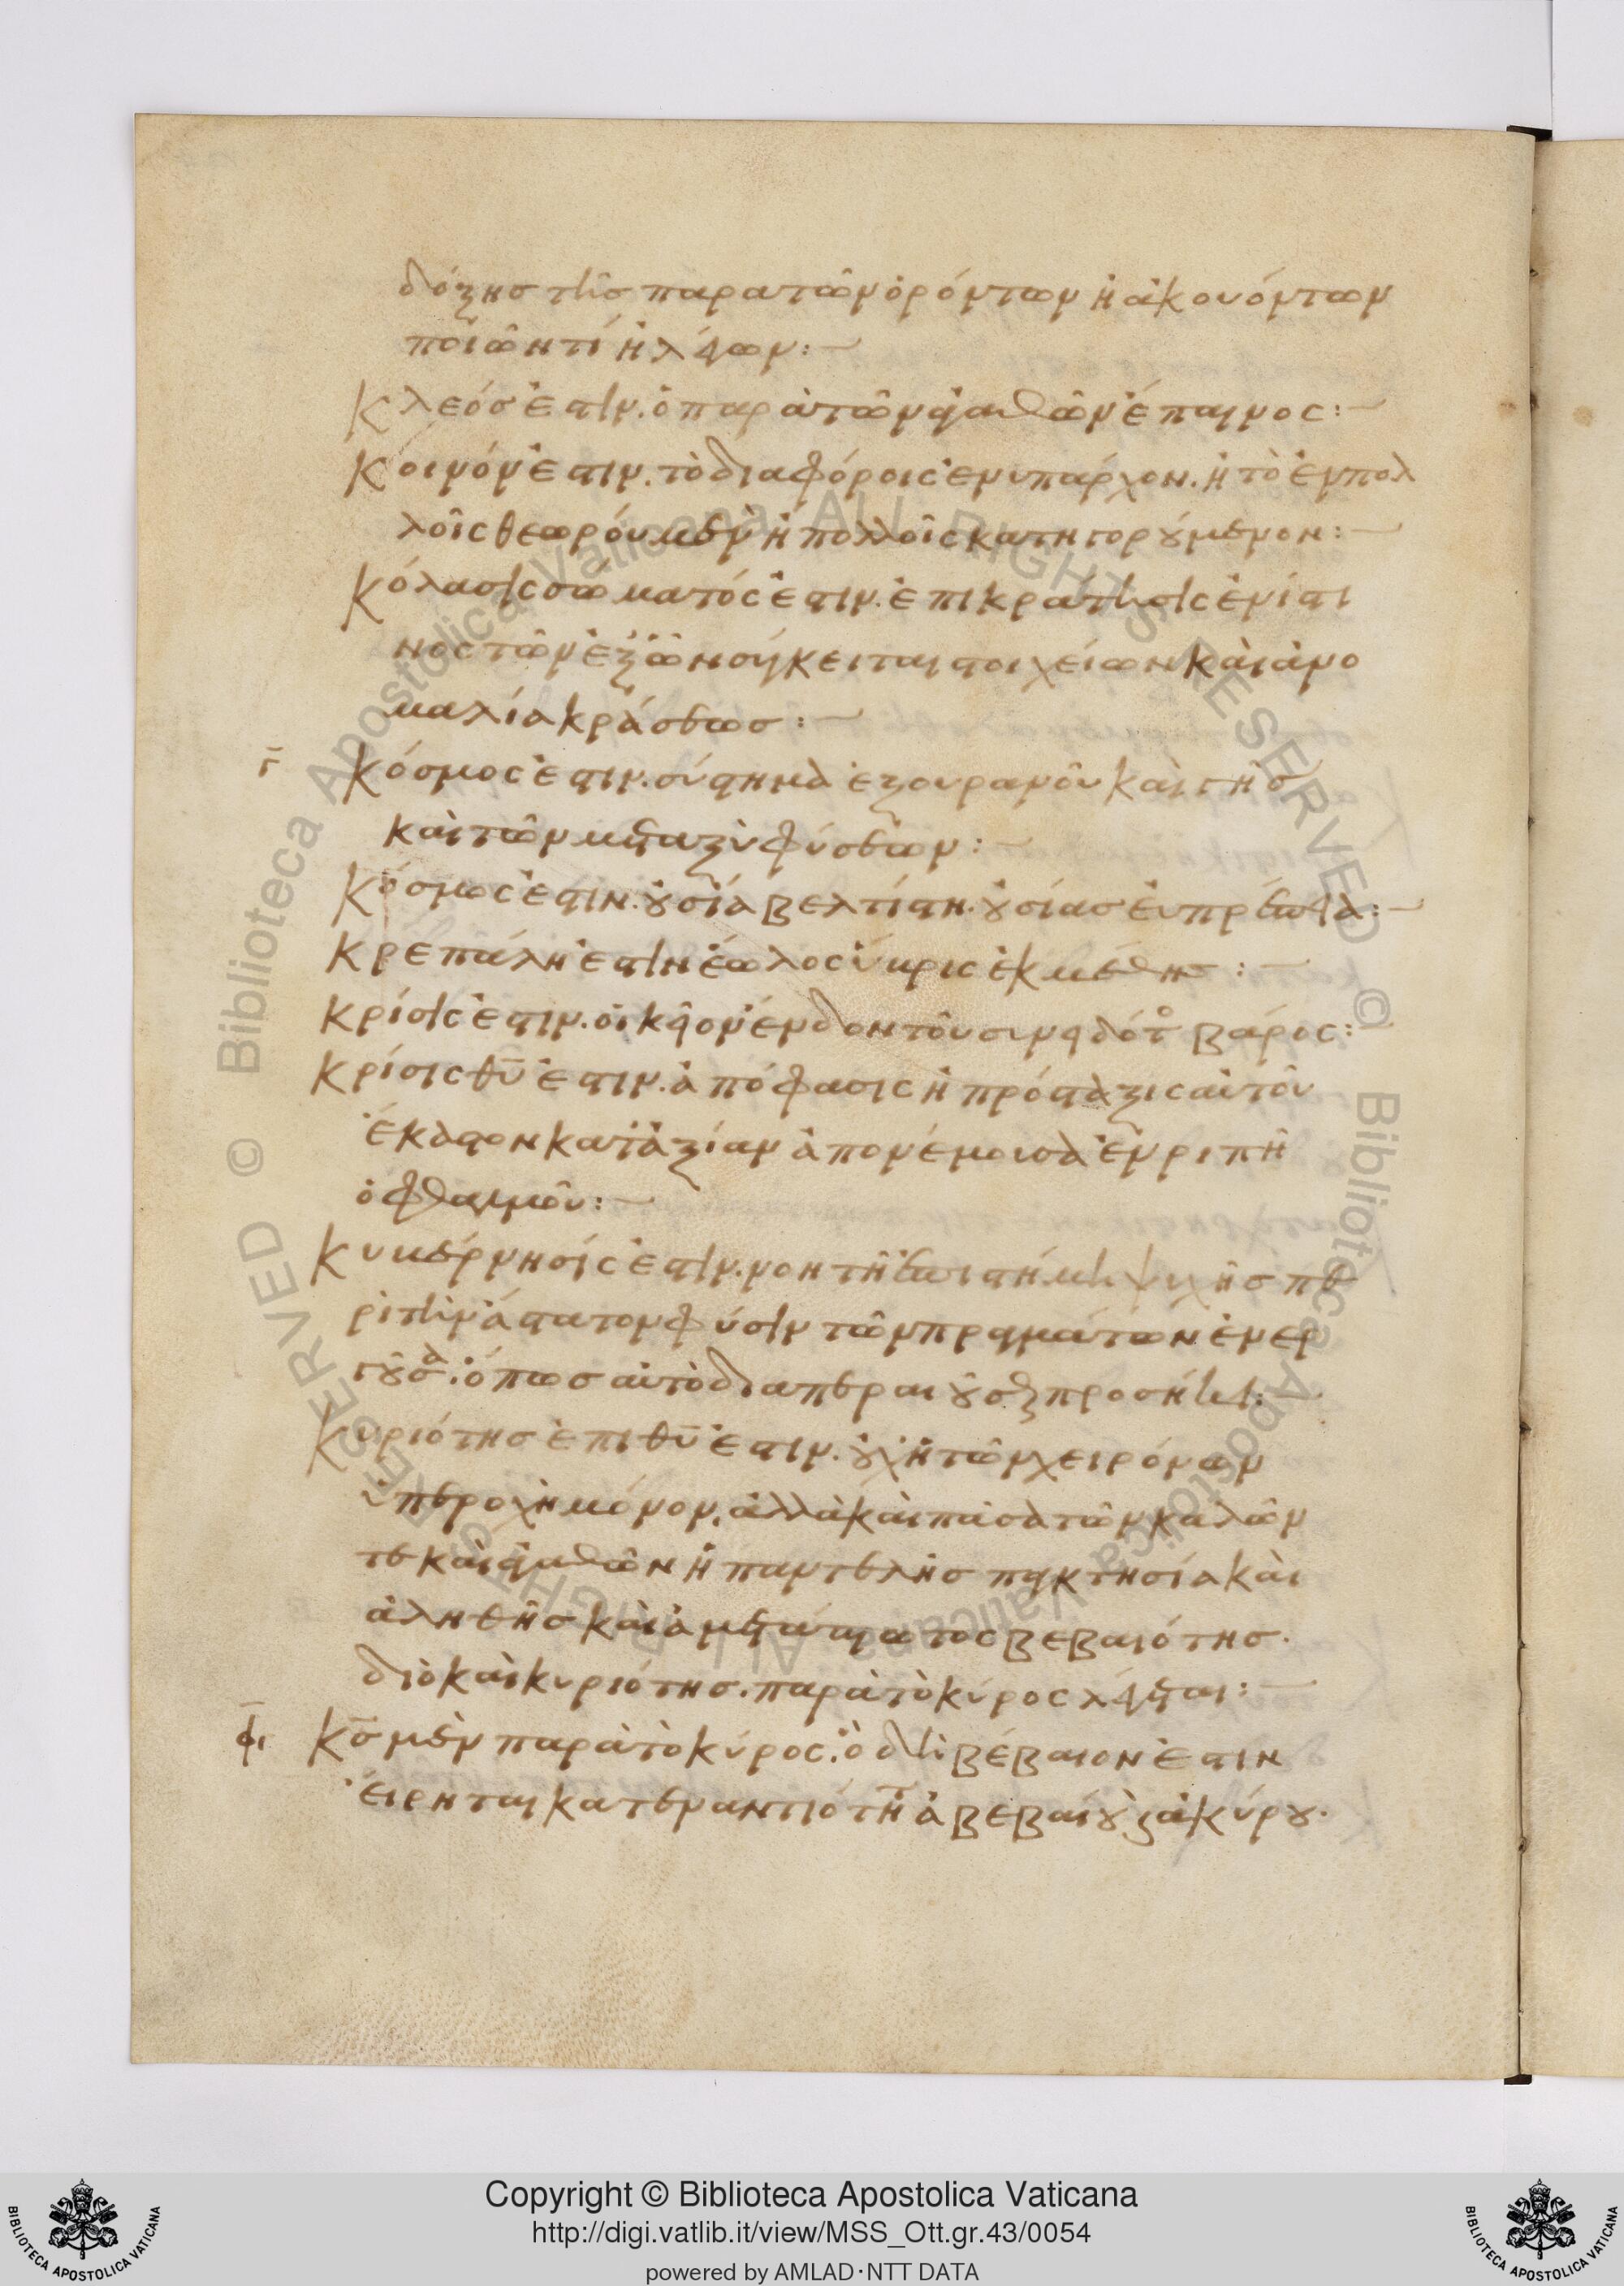 δόξησ τῆσ παρα τῶν ὁρόντων ἡ ἀκουόντων
ποιῶν τί ἡ λέγων:
Κλεόσ ἐστὶν. ὁ παρὰ τῶν ἀγαθῶν ἔπαινος:
Κοινόν ἐστιν. τὸ διαφόροις ἐνυπάρχον. ἡ τὸ ἐν πολ
λοῖς θεωρούμεν ἡ πολλοῖς κατηγορούμενον:
Κόλασὶς σώματός ἐστιν. ἐπικράτησὶς ἑνί στι
νος τῶν ἐξ ὧν σύγκειται στοιχείων καὶ ἀνο
μαλία κράσεωσ:
Γ
Κόσμος ἐστιν. σύστημα ἐξ ουρανοῦ καὶ γῆσ
καὶ τῶν μεταξὺ φύσεων:
Κόσμος ἐστιν. οὐσία βελτίστη. οὐσίασ
Κρεπάλη ἐστὶν ἑώλος ὕβρις ἐκ μέθης:
Κρίσὶς ἐστιν. ἔνδον τοῦ βάρος:
Κρίσις θυ ἐστιν. ἀπόφασις ἡ πρόσταξις αὐτοῦ
ἕκαστον κατ ἀξίαν ἀπονέμουσα ἐν ριπῆ
ὀφθαλμοῦ:
Κυβέρνησίς ἐστὶν. ψυχῆσ πε
ρὶ τὴν ἄστατον φύσιν τῶν πραγμάτων ἐνερ
γοῦσα. ὅπωσ αὐτὸ διαπεραιοῦσθαι προσήκει:
Κυριότησ ἐπι θυ ἐστιν. οὐχ ἡ τῶν χειρόνων
ὑπεροχὴ μόνον, ἀλλὰ καὶ πάσα τῶν καλῶν
τε καὶ ἀγαθῶν ἡ παντελὴσ παγκτησία καὶ
ἀληθὴσ καὶ ἀμετάπτωτος βεβαιότησ.
διὸ καὶ κυριότησ. παρὰ τὸ κύρος λέγεται:
Κσ μὲν παρὰ τὸ κύρος. ὃ δὴ βέβαιον ἐστιν
ἔιρηται κατ εναντιότητα ἀβεβαίου καὶ ἀκύρου.
Copyright © Biblioteca Apostolica Vaticana
http://digi.vatlib.it/view/MSS_Ott.gr.43/0054
powered by AMLAD·NTT DATA